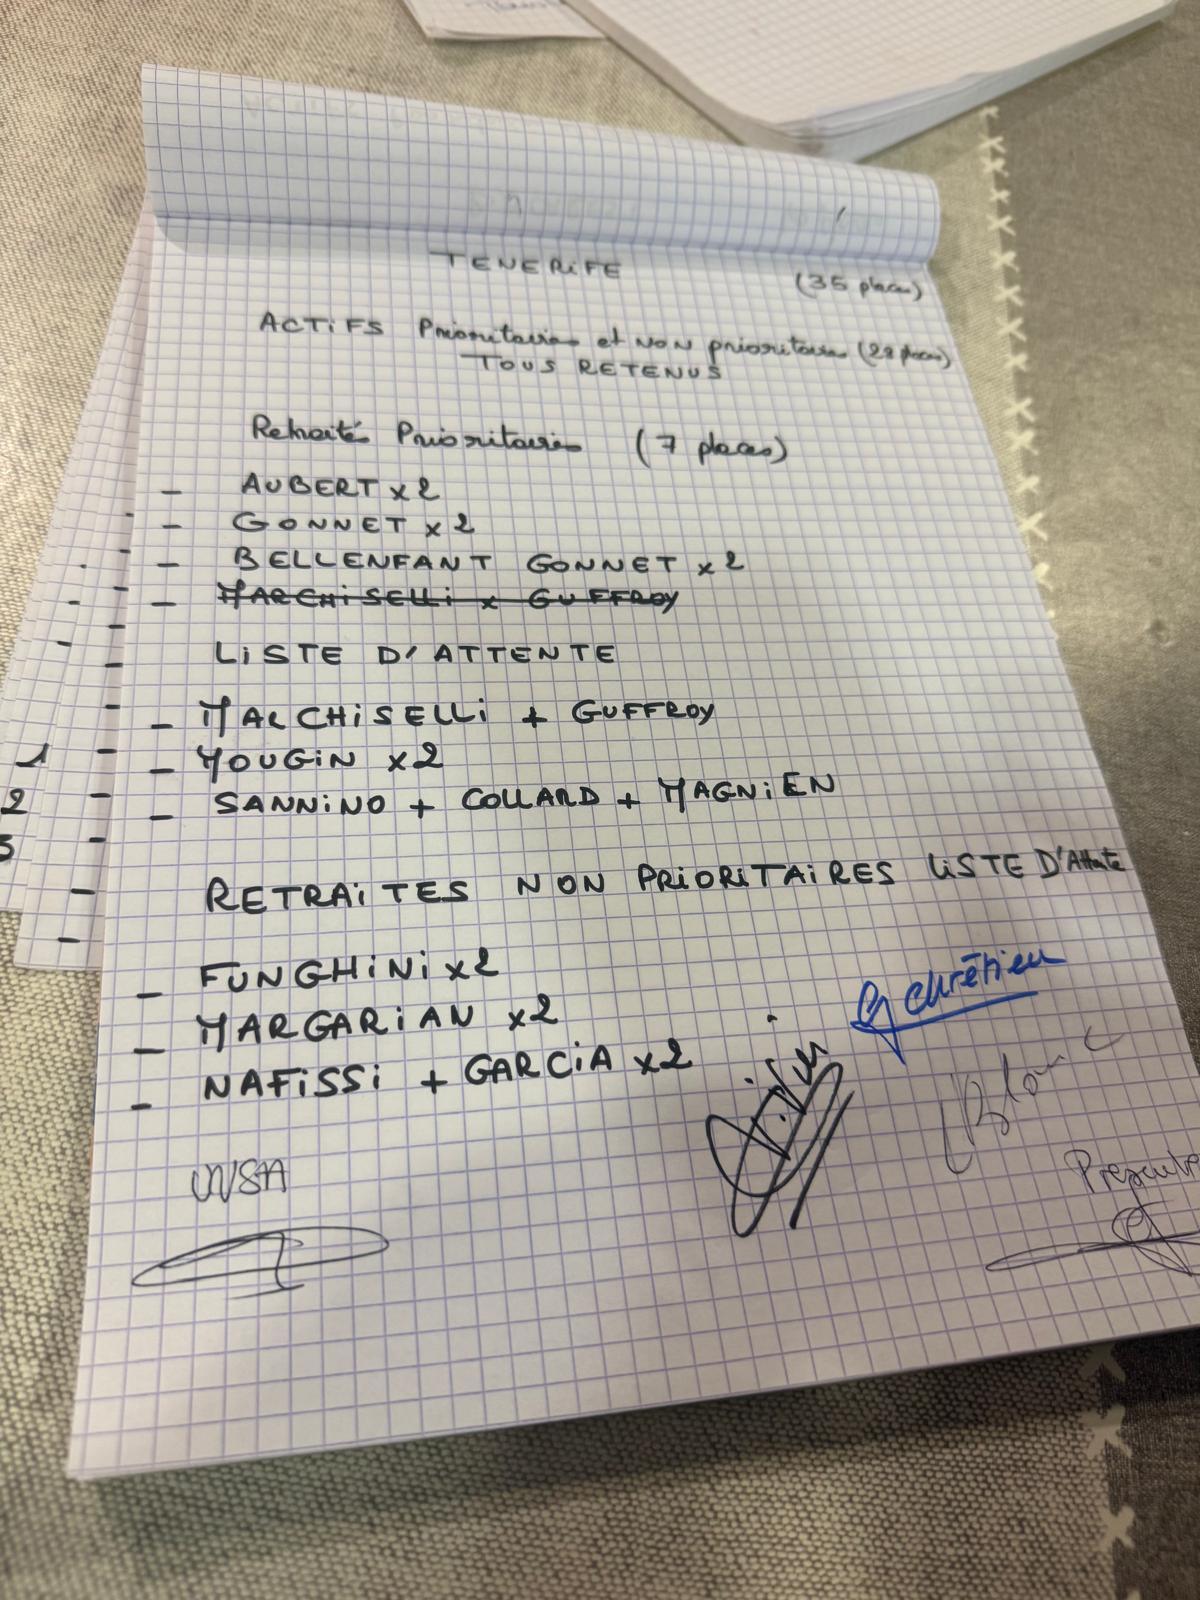 TENERiFE
(35 places)
ACTiFS Prioritaires et NON prioritaires (28 places)
TOUS RETENUS
Retraités Prioritaires (7 places)
- AUBERT x 2
- GONNET x 2
- BELLENFANT GONNET x 2
- MARCHiSELLi x GUFFROY
LiSTE D'ATTENTE
- MALCHiSELLi + GUFFROY
- MOUGiN x2
- SANNiNO + COLLARD + MAGNiEN
RETRAiTES NON PRiORiTAiRES LiSTE D'Attente
- FUNGHiNi x2
- MARGARiAN x2
- NAFiSSi + GARCiA x2
chrétien
Blanc
1
2
3